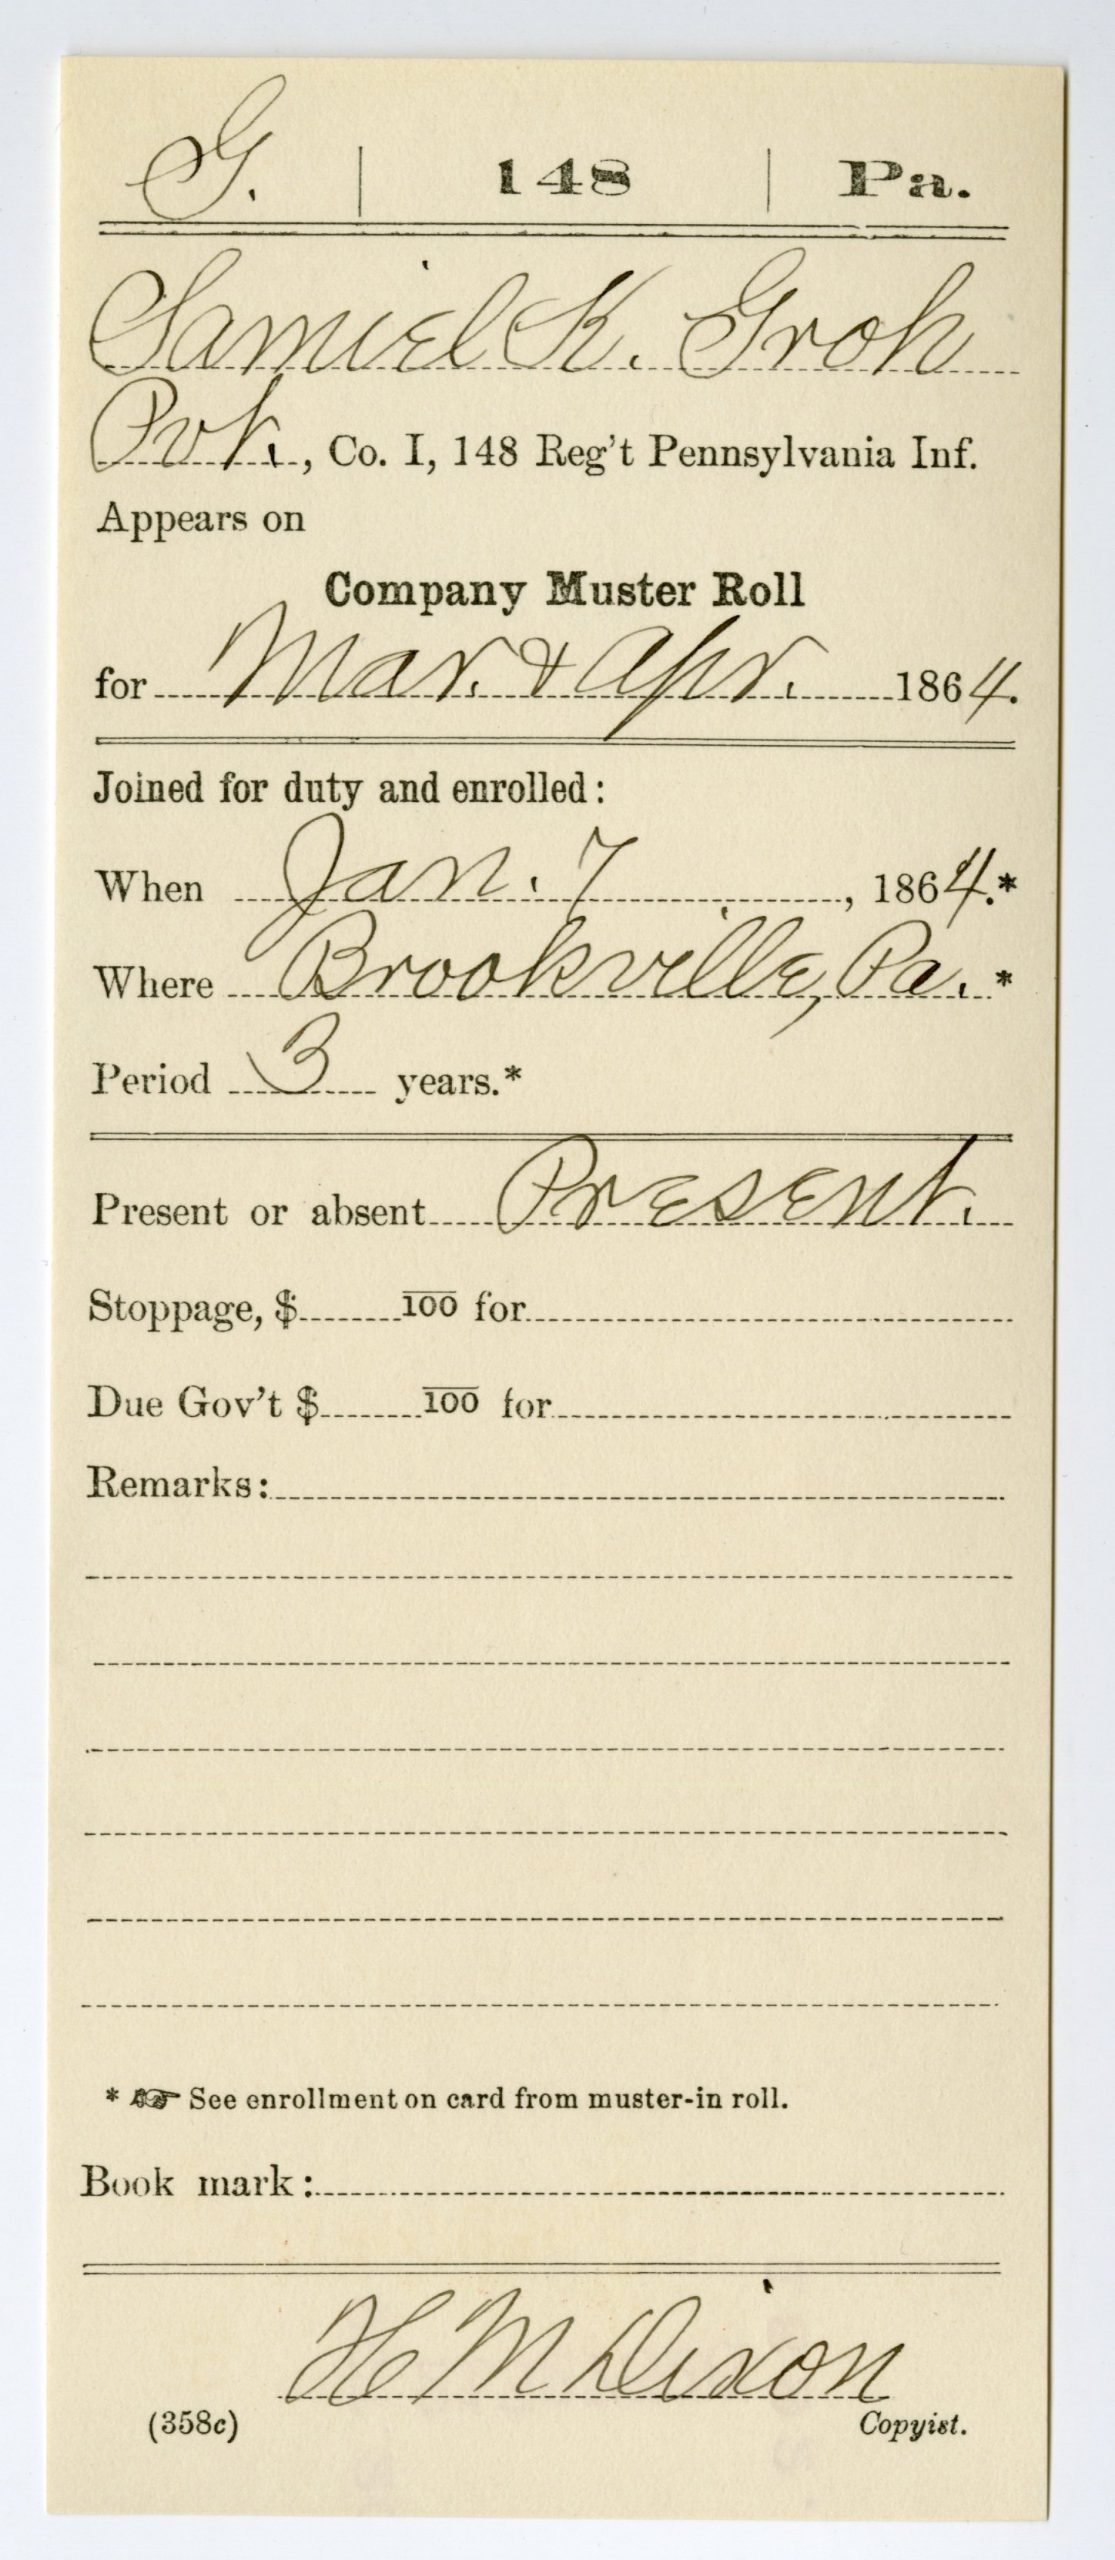 G. | 148 | Pa.
Samiel K. Groh
Pvt., Co. I, 148 Reg't Pennsylvania Inf.
Appears on
Company Muster Roll
for Mar. & Apr. 1864.
Joined for duty and enrolled:
When Jan. 7, 1864.*
Where Brookville, Pa. *
Period 3 years.*
Present or absent Present.
Stoppage, $ 100 for
Due Gov't $ 100 for
Remarks:
* ☞ See enrollment on card from muster-in roll.
Book mark:
H M Dixon
(358c) Copyist.